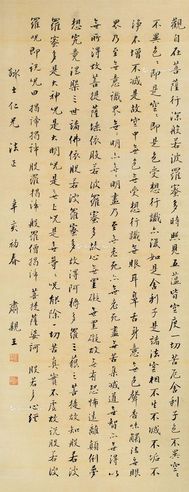 觀自在菩薩行深般若波羅蜜多時照見五蘊皆空度一切苦厄舍利子色不異空空
不異色色即是空空即是色受想行識亦復如是舍利子是諸法空相不生不滅不垢不
淨不增不減是故空中無色無受想行識無眼耳鼻舌身意無色聲香味觸法無眼
界乃至無意識界無無明亦無無明盡乃至無老死亦無老死盡無苦集滅道無智亦無得以
無所得故菩提薩埵依般若波羅蜜多故心無罣礙無罣礙故無有恐怖遠離顛倒夢
想究竟涅槃三世諸佛依般若波羅蜜多故得阿耨多羅三藐三菩提故知般若波
羅蜜多是大神咒是大明咒是無上咒是無等等咒能除一切苦真實不虛故說般若波
羅蜜多咒即說咒曰揭諦揭諦般羅揭諦般羅僧揭諦菩提薩婆訶 般若多心經
士仁兄 法正 辛亥初春 肅親王